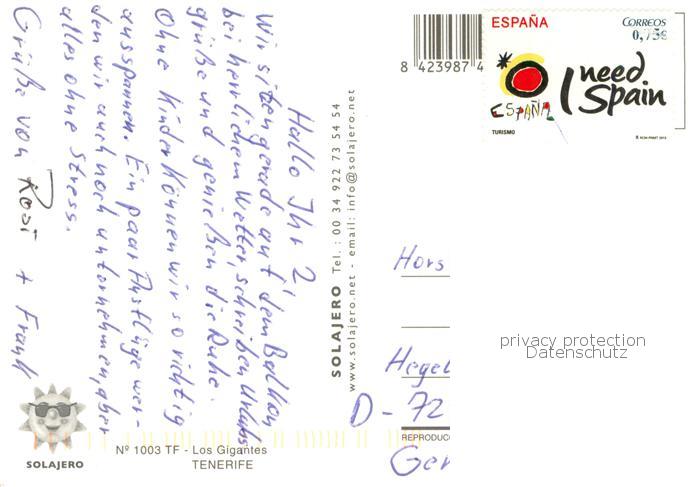 Hallo Ihr 2,
Wir sitzen gerade auf dem Balkon
bei herrlichem Wetter, schreiben Urlaubs
grüße und genießen die Ruhe.
Ohne Kinder können wir so richtig
ausspannen. Ein paar Ausflüge wer-
den wir auch noch unternehmen, aber
alles ohne Stress.
Grüße von Rosi + Frank
SOLAJERO
Nº 1003 TF - Los Gigantes
TENERIFE
SOLAJERO Tel.: 00 34 922 73 54 54
www.solajero.net - email: info@solajero.net
8 423987 4
ESPAÑA
CORREOS
0,75€
I need
Spain
ESPAÑA
TURISMO
Hors
Hegel
D-72
REPRODUC
Ger
privacy protection
Datenschutz